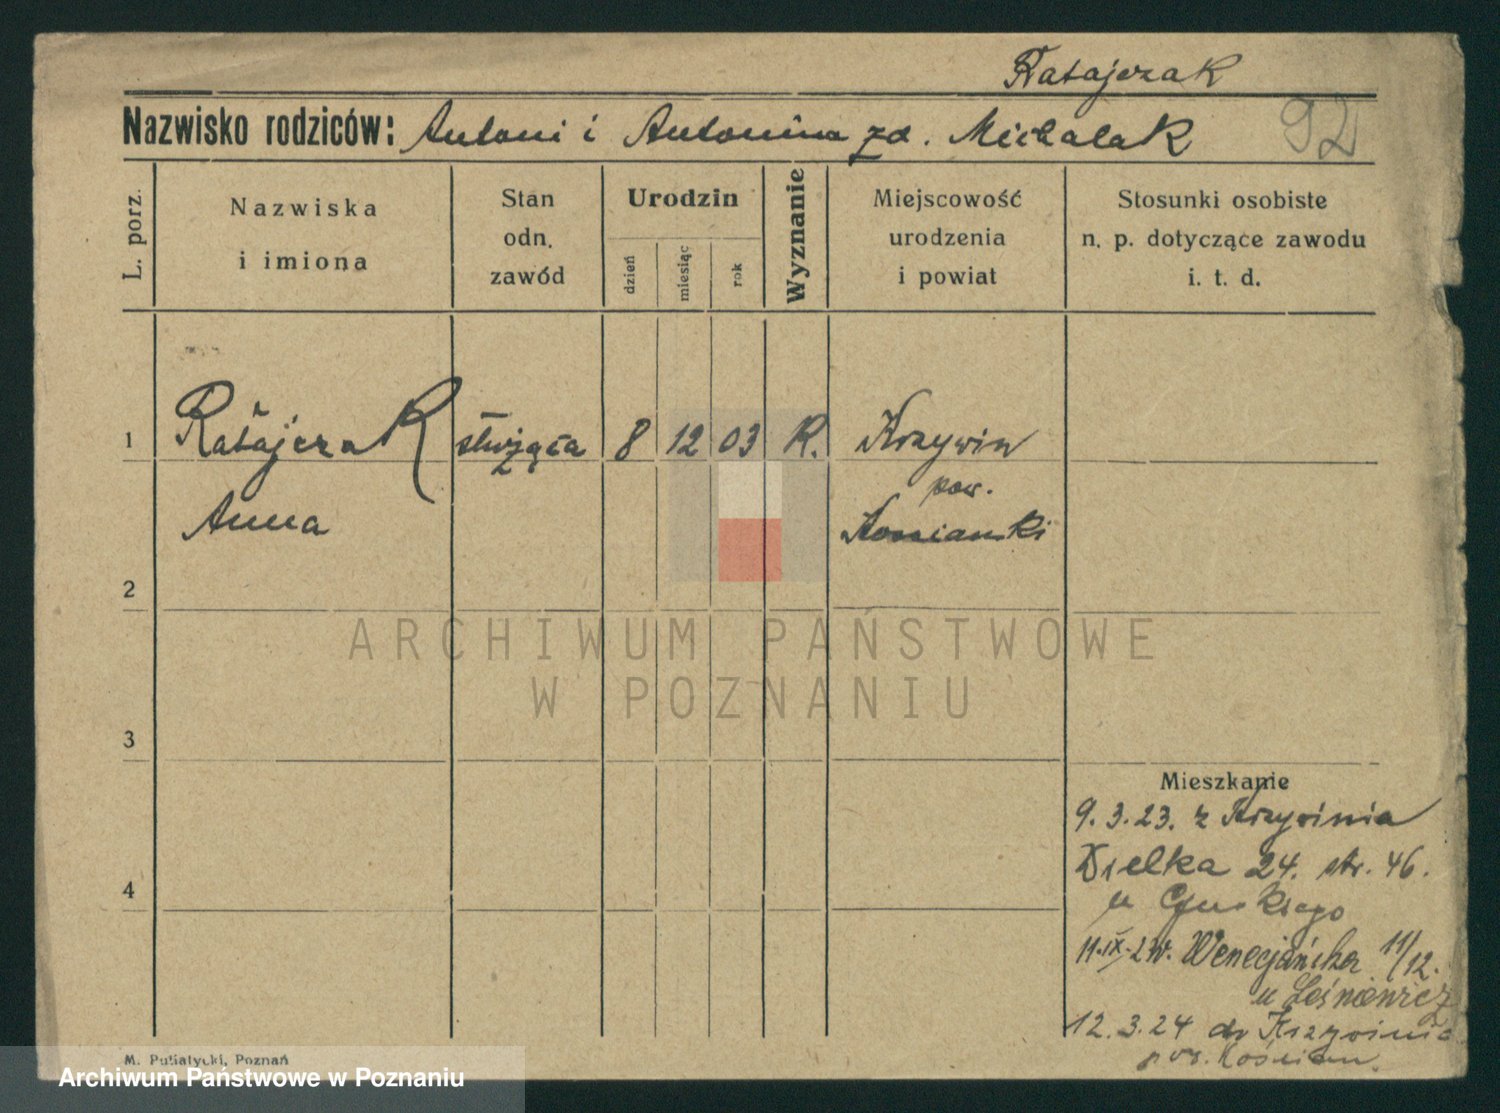 Ratajczak
92
Nazwisko rodziców: Antoni i Antonina zd. Michalak
L. porz.
Nazwiska
i imiona
Stan
odn.
zawód
Urodzin
dzień
miesiąc
rok
Wyznanie
Miejscowość
urodzenia
i powiat
Stosunki osobiste
n. p. dotyczące zawodu
i. t. d.
1 Ratajczak służąca 8 12 03 R. Krzywin
pow.
Anna Kościański
2
ARCHIWUM PAŃSTWOWE
W POZNANIU
3
Mieszkanie
9.3.23. z Krzywinia
Wielka 24. str. 46.
4
u
11.IX. Wenecjańska 11/12.
u Leśniewicz
12.3.24 do Krzywinia
pow. Kościan.
M. Putiatycki, Poznań
Archiwum Państwowe w Poznaniu